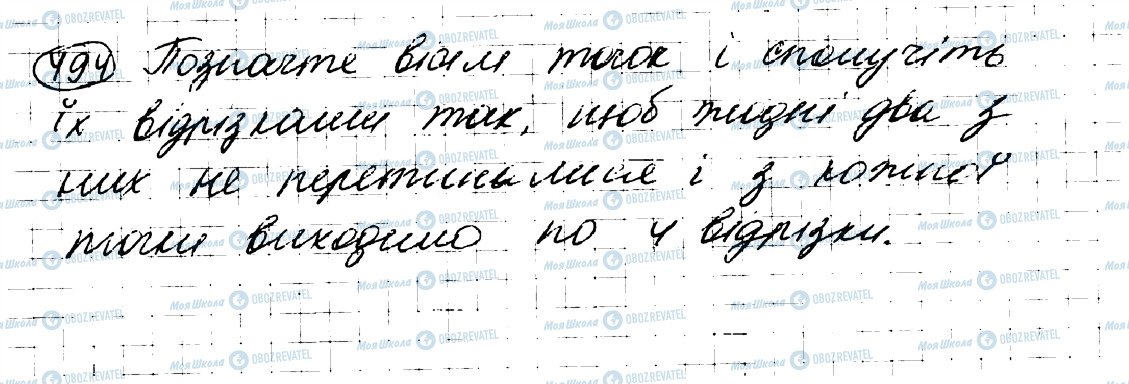 494 Позначте вісім точок і сполучіть
їх відрізками так, щоб жодні два з
них не перетиналися і з кожної
точки виходило по 4 відрізки.
МояШкола OBOZREVATEL